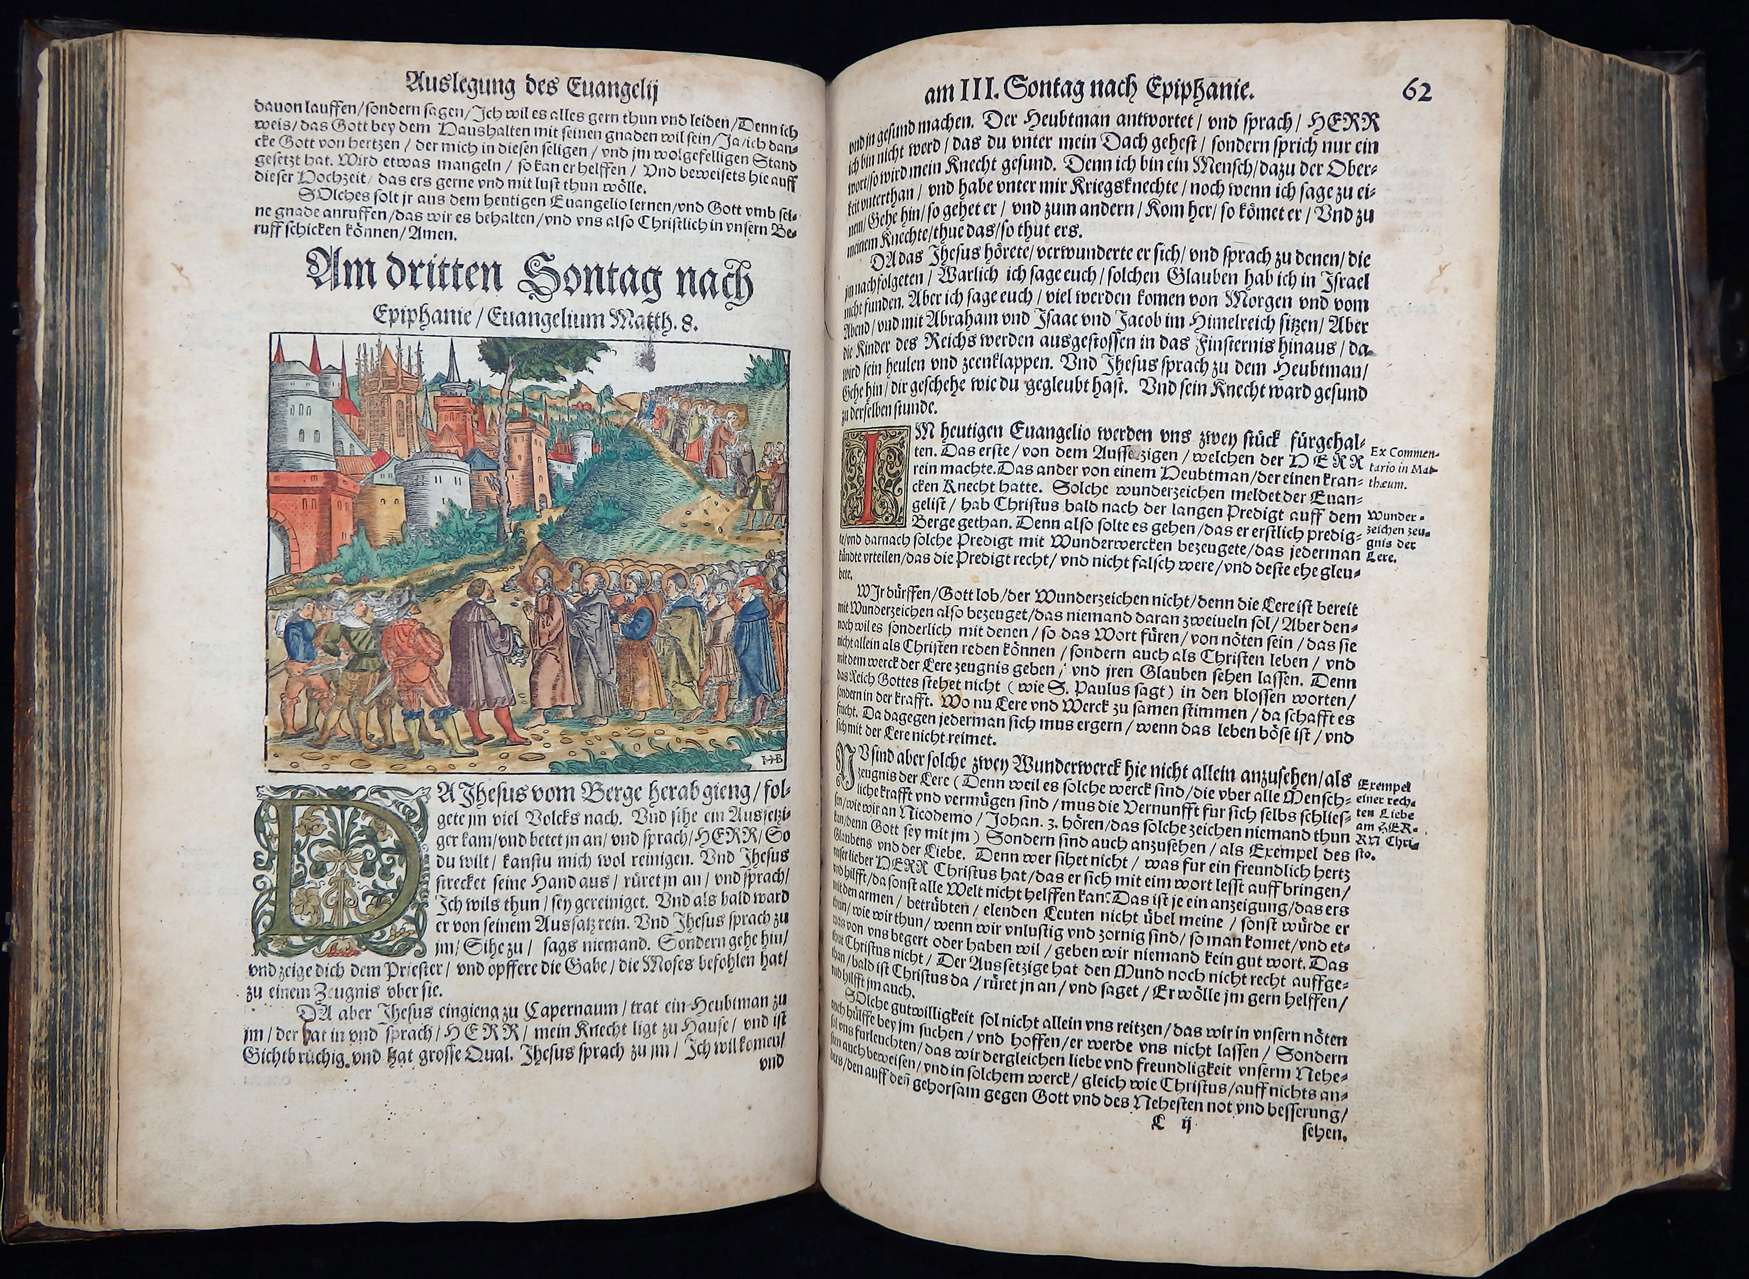 Auslegung des Euangelij
dauon lauffen/sondern sagen/Ich wil es alles gern thun vnd leiden/Denn ich
weis/das Gott bey dem Haushalten mit seinen gnaden wil sein/Ja/ich dan-
cke Gott von hertzen/der mich in diesen seligen/vnd jm wolgefelligen Stand
gesetzt hat. Wird etwas mangeln/so kan er helffen/Vnd beweisets hie auff
dieser Hochzeit/das ers gerne vnd mit lust thun wölle.
SOlches solt jr aus dem heutigen Euangelio lernen/vnd Gott vmb sei-
ne gnade anruffen/das wir es behalten/vnd vns also Christlich in vnsern Be-
ruff schicken können/Amen.
Am dritten Sontag nach
Epiphanie/Euangelium Matth. 8.
HB
DA Jhesus vom Berge herab gieng/fol-
gete jm viel Volcks nach. Vnd sihe ein Aussetzi-
ger kam/vnd betet jn an/vnd sprach/HERR/So
du wilt/kanstu mich wol reinigen. Vnd Jhesus
strecket seine Hand aus/rüret jn an/vnd sprach/
Ich wils thun/sey gereiniget. Vnd als bald ward
er von seinem Aussatz rein. Vnd Jhesus sprach zu
jm/Sihe zu/sags niemand. Sondern gehe hin/
vnd zeige dich dem Priester/vnd opffere die Gabe/die Moses befohlen hat/
zu einem Zeugnis vber sie.
DA aber Jhesus eingieng zu Capernaum/trat ein Heubtman zu
jm/der bat in vnd sprach/HERR/mein Knecht ligt zu Hause/vnd ist
Gichtbrüchig, vnd hat grosse Qual. Jhesus sprach zu jm/Ich wil komen/
vnd
am III. Sontag nach Epiphanie. 62
vnd jn gesund machen. Der Heubtman antwortet/vnd sprach/HERR
ich bin nicht werd/das du vnter mein Dach gehest/sondern sprich nur ein
wort/so wird mein Knecht gesund. Denn ich bin ein Mensch/dazu der Ober-
keit vnterthan/vnd habe vnter mir Kriegsknechte/noch wenn ich sage zu ei-
nem/Gehe hin/so gehet er/vnd zum andern/Kom her/so kömet er/Vnd zu
meinem Knechte/thue das/so thut ers.
DA das Jhesus hörete/verwunderte er sich/vnd sprach zu denen/die
jm nachfolgeten/Warlich ich sage euch/solchen Glauben hab ich in Israel
nicht funden. Aber ich sage euch/viel werden komen von Morgen vnd vom
Abend/vnd mit Abraham vnd Isaac vnd Jacob im Himelreich sitzen/Aber
die Kinder des Reichs werden ausgestossen in das Finsternis hinaus/da
wird sein heulen vnd zeenklappen. Vnd Jhesus sprach zu dem Heubtman/
Gehe hin/dir geschehe wie du gegleubt hast. Vnd sein Knecht ward gesund
zu derselben stunde.
IM heutigen Euangelio werden vns zwey stück fürgehal-
ten. Das erste/von dem Aussetzigen/welchen der HERR
rein machte. Das ander von einem Heubtman/der einen kran-
cken Knecht hatte. Solche wunderzeichen meldet der Euan-
gelist/hab Christus bald nach der langen Predigt auff dem
Berge gethan. Denn also solte es gehen/das er erstlich predig-
te/vnd darnach solche Predigt mit Wunderwercken bezeugete/das jederman
kündte vrteilen/das die Predigt recht/vnd nicht falsch were/vnd deste ehe gleu-
bete.
Ex Commen-
tario in Mat-
thæum.
Wunder-
zeichen zeu-
gnis der
Lere.
WIr dürffen/Gott lob/der Wunderzeichen nicht/denn die Lere ist bereit
mit Wunderzeichen also bezeuget/das niemand daran zweiueln sol/Aber den-
noch wil es sonderlich mit denen/so das Wort füren/von nöten sein/das sie
nicht allein als Christen reden können/sondern auch als Christen leben/vnd
mit dem werck der Lere zeugnis geben/vnd jren Glauben sehen lassen. Denn
das Reich Gottes stehet nicht (wie S. Paulus sagt) in den blossen worten/
sondern in der krafft. Wo nu Lere vnd Werck zu samen stimmen/da schafft es
frucht. Da dagegen jederman sich mus ergern/wenn das leben böse ist/vnd
sich mit der Lere nicht reimet.
NV sind aber solche zwey Wunderwerck hie nicht allein anzusehen/als
zeugnis der Lere (Denn weil es solche werck sind/die vber alle Mensch-
liche krafft vnd vermügen sind/mus die Vernunfft für sich selbs schlies-
sen/wie wir an Nicodemo/Johan. 3. hören/das solche zeichen niemand thun
kan/denn Gott sey mit jm) Sondern sind auch anzusehen/als Exempel des
Glaubens vnd der Liebe. Denn wer sihet nicht/was für ein freundlich hertz
vnser lieber HERR Christus hat/das er sich mit eim wort lesst auff bringen/
vnd hilfft/da sonst alle Welt nicht helffen kan? Das ist je ein anzeigung/das ers
mit den armen/betrübten/elenden Leuten nicht übel meine/sonst würde er
thun/wie wir thun/wenn wir vnlustig vnd zornig sind/so man komet/vnd et-
was von vns begert oder haben wil/geben wir niemand kein gut wort. Das
thut Christus nicht/Der Aussetzige hat den Mund noch nicht recht auffge-
than/bald ist Christus da/rüret jn an/vnd saget/Er wölle jm gern helffen/
vnd hilfft jm auch.
Exempel
einer rech-
ten Liebe
am HER-
RN Chri-
sto.
SOlche gutwilligkeit sol nicht allein vns reitzen/das wir in vnsern nöten
auch hülffe bey jm suchen/vnd hoffen/er werde vns nicht lassen/Sondern
sol vns furleuchten/das wir dergleichen liebe vnd freundligkeit vnserm Nehe-
sten auch beweisen/vnd in solchem werck/gleich wie Christus/auff nichts an-
ders/den auff den gehorsam gegen Gott vnd des Nehesten not vnd besserung/
L ij sehen.